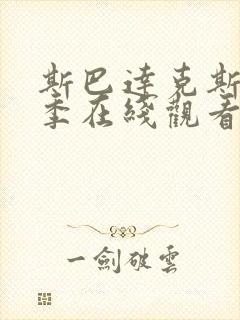 斯巴達克斯
季在綫觀看
一劍破雲